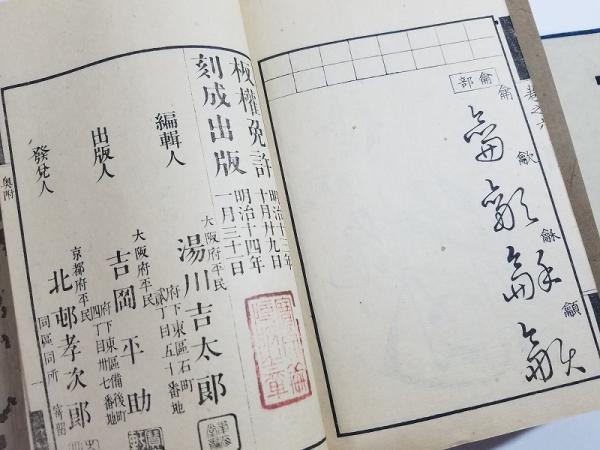 卷之六
龠部
龠
龡
龢
龥
板權免許
明治十三年
十月廿九日
刻成出版
明治十四年
一月三十一日
編輯人
大阪府平民
湯川吉太郎
府下東區石町
貳丁目五十番地
出版人
大阪府平民
吉岡平助
府下東區備後町
四丁目卅七番地
發兌人
京都府平民
北邨孝次郎
同區同所
寄留
奥附